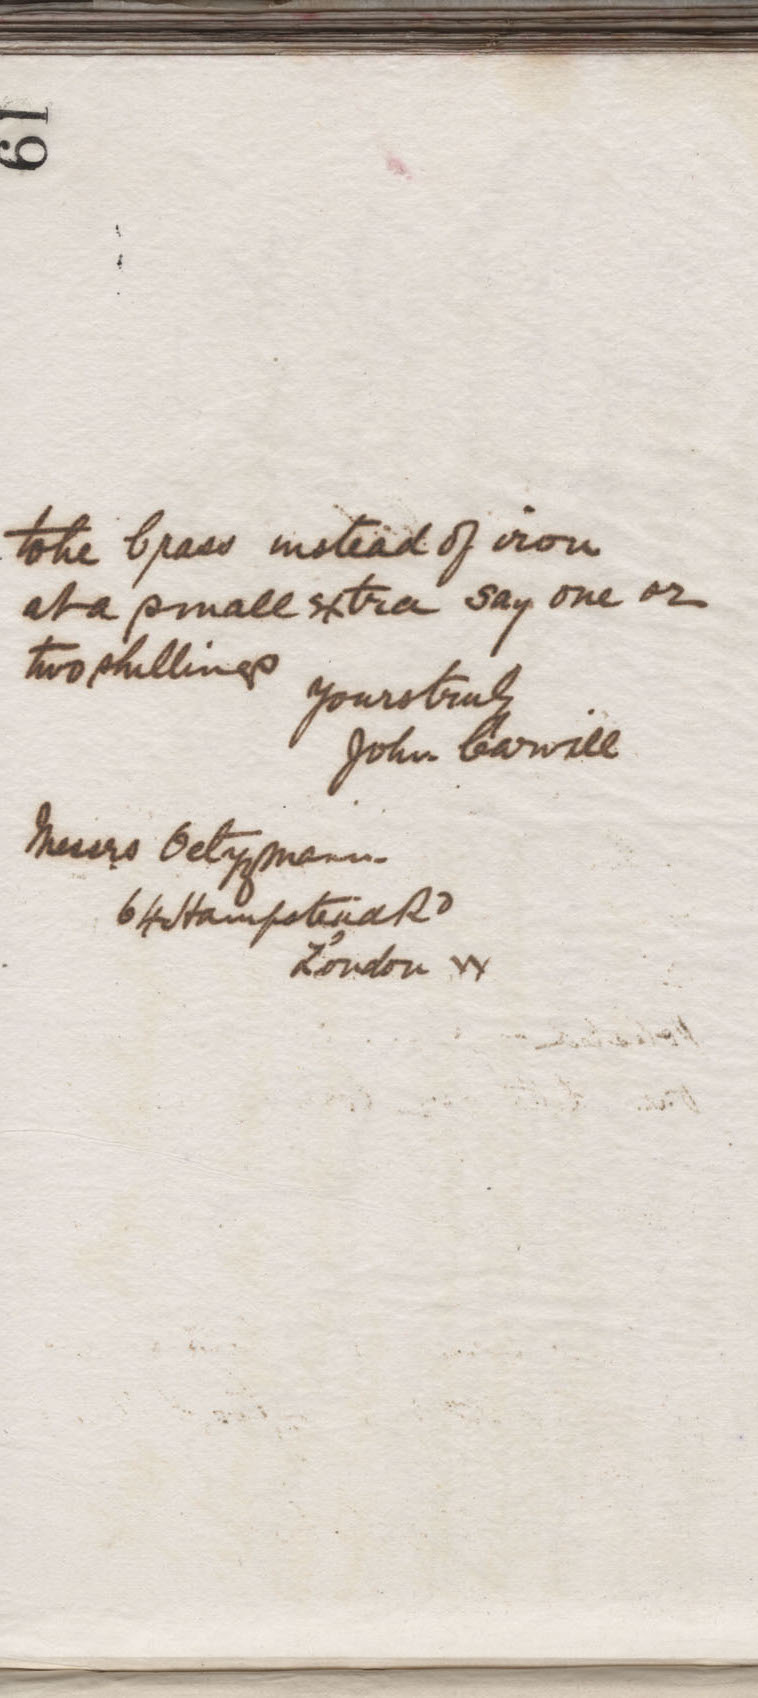 61
to be brass instead of iron
at a small extra say one or
two shillings
yours truly
John Carvill
Messrs Oetzmann
64 Hampstead Rd
London W